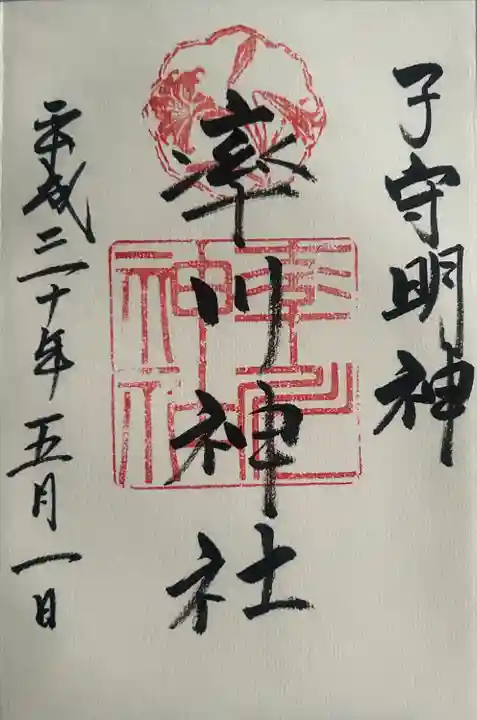 子守明神
率川神社
平成三十年五月一日
率川神社